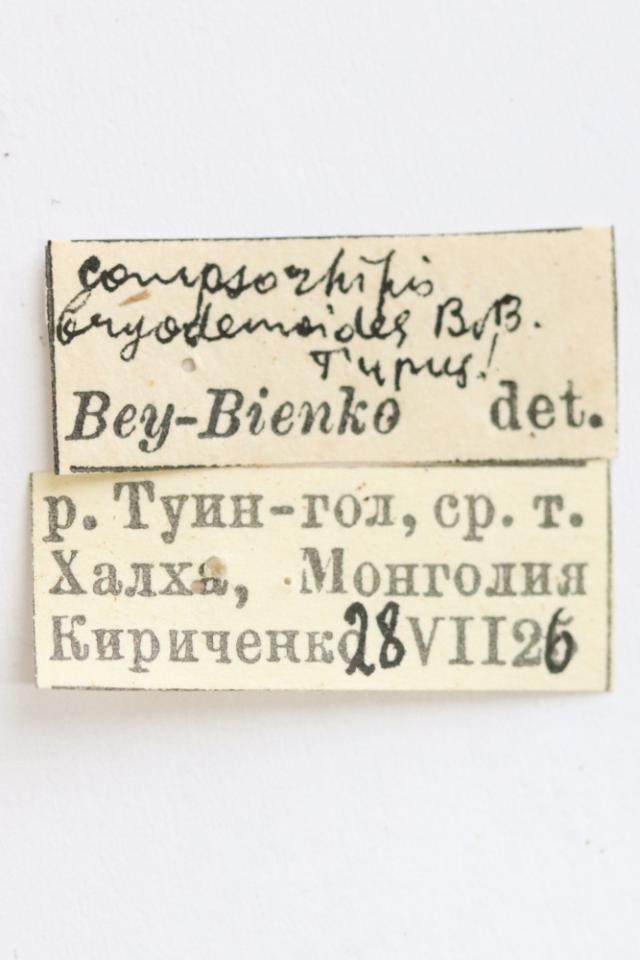 Compsorhipis
bryodemoides B.-B.
Typus!
Bey-Bienko det.
р. Туин-гол, ср. т.
Халха, Монголия
Кириченко 28 VII 26